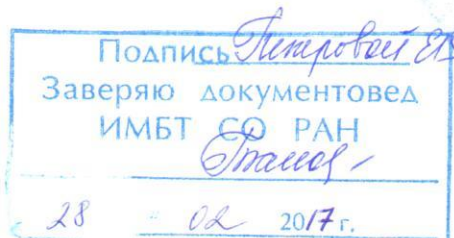 Подпись Петровой Е.В.
Заверяю документовед
ИМБТ СО РАН
28 02 2017 г.